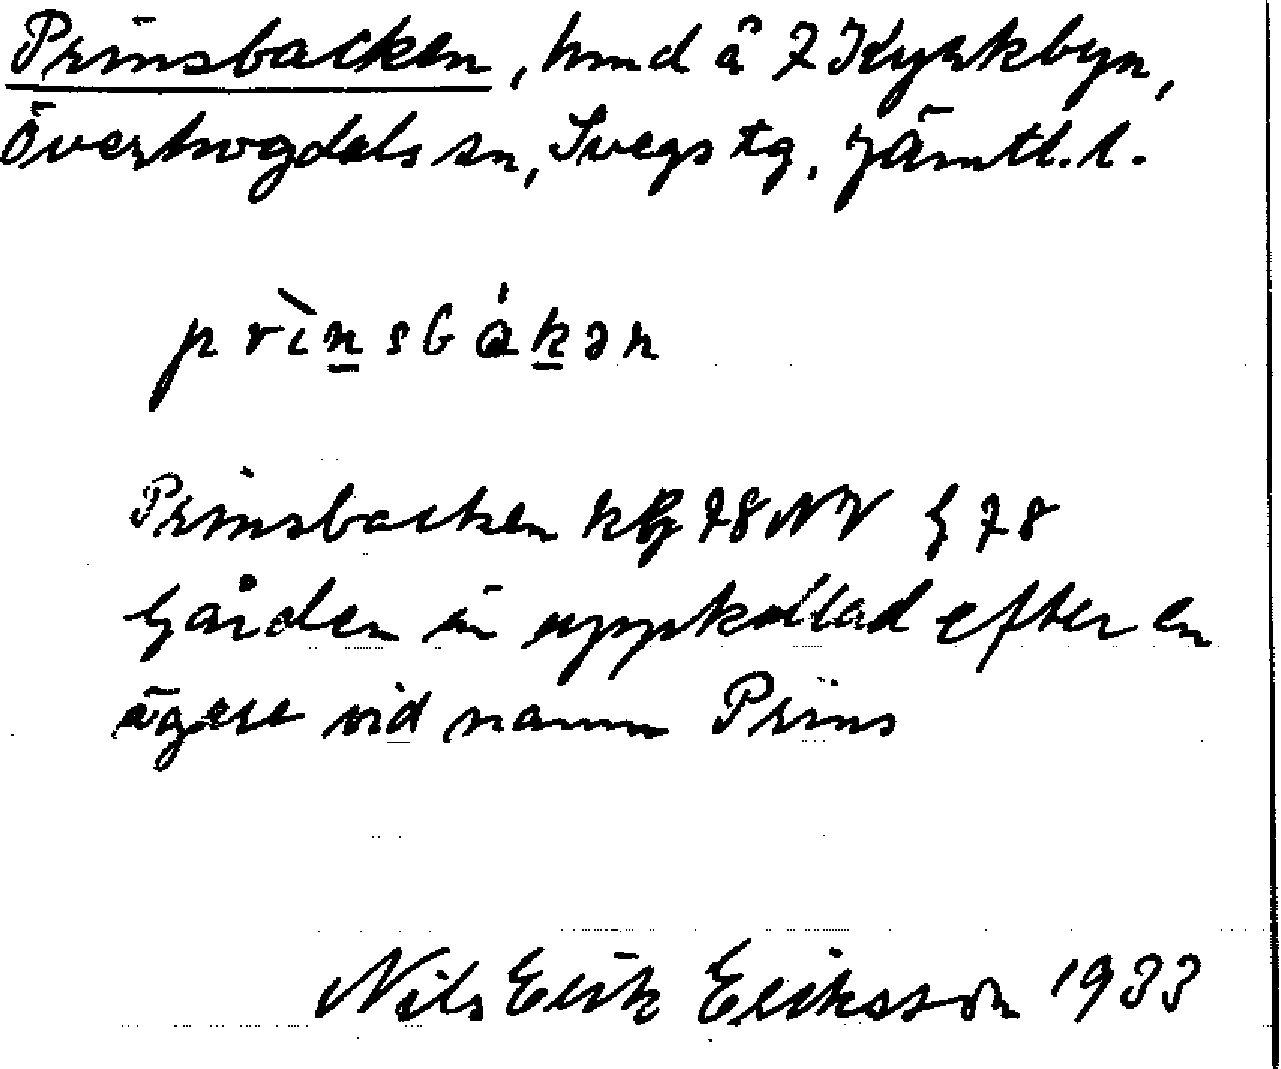 Prinsbacken, hmd å 7 Kyrkbyn,
Överhogdals sn, Svegs tg, Jämtl. l.
prìn̲sbák̲ən
Prinsbacken 78 NV G 78
Gården är uppkallad efter en
ägare vid namn Prins
Nils Erik Eriksson 1933